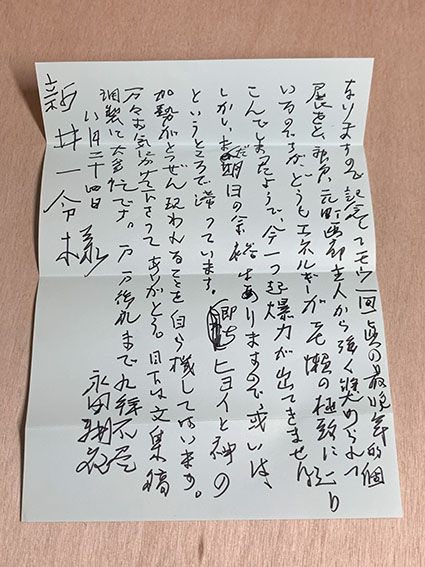 なりますので記念してモウ一回真の最晩年的個
展をと、神戸、元町画廊主人から強く奨められて
いるのですが、どうもエネルギが老懶の極致に
こんでしまったようで、今一つ起爆力が出てきません。
しかしまだ期日の余裕はありますので、或いは、
というところで滞っています。即ちヒョイと神の
加勢がとつぜん現われることを自ら機してはいます。
万々お気にかけて下さってありがとう。目下は文集稿
調製に大多忙です。万万後れまで 九拝不尽
八月二十四日 永田耕衣
新井一令様